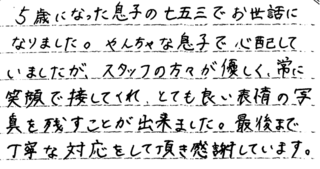 5歳になった息子の七五三でお世話に
なりました。やんちゃな息子で心配して
いましたが、スタッフの方々が優しく、常に
笑顔で接してくれ、とても良い表情の写
真を残すことが出来ました。最後まで
丁寧な対応をして頂き感謝しています。